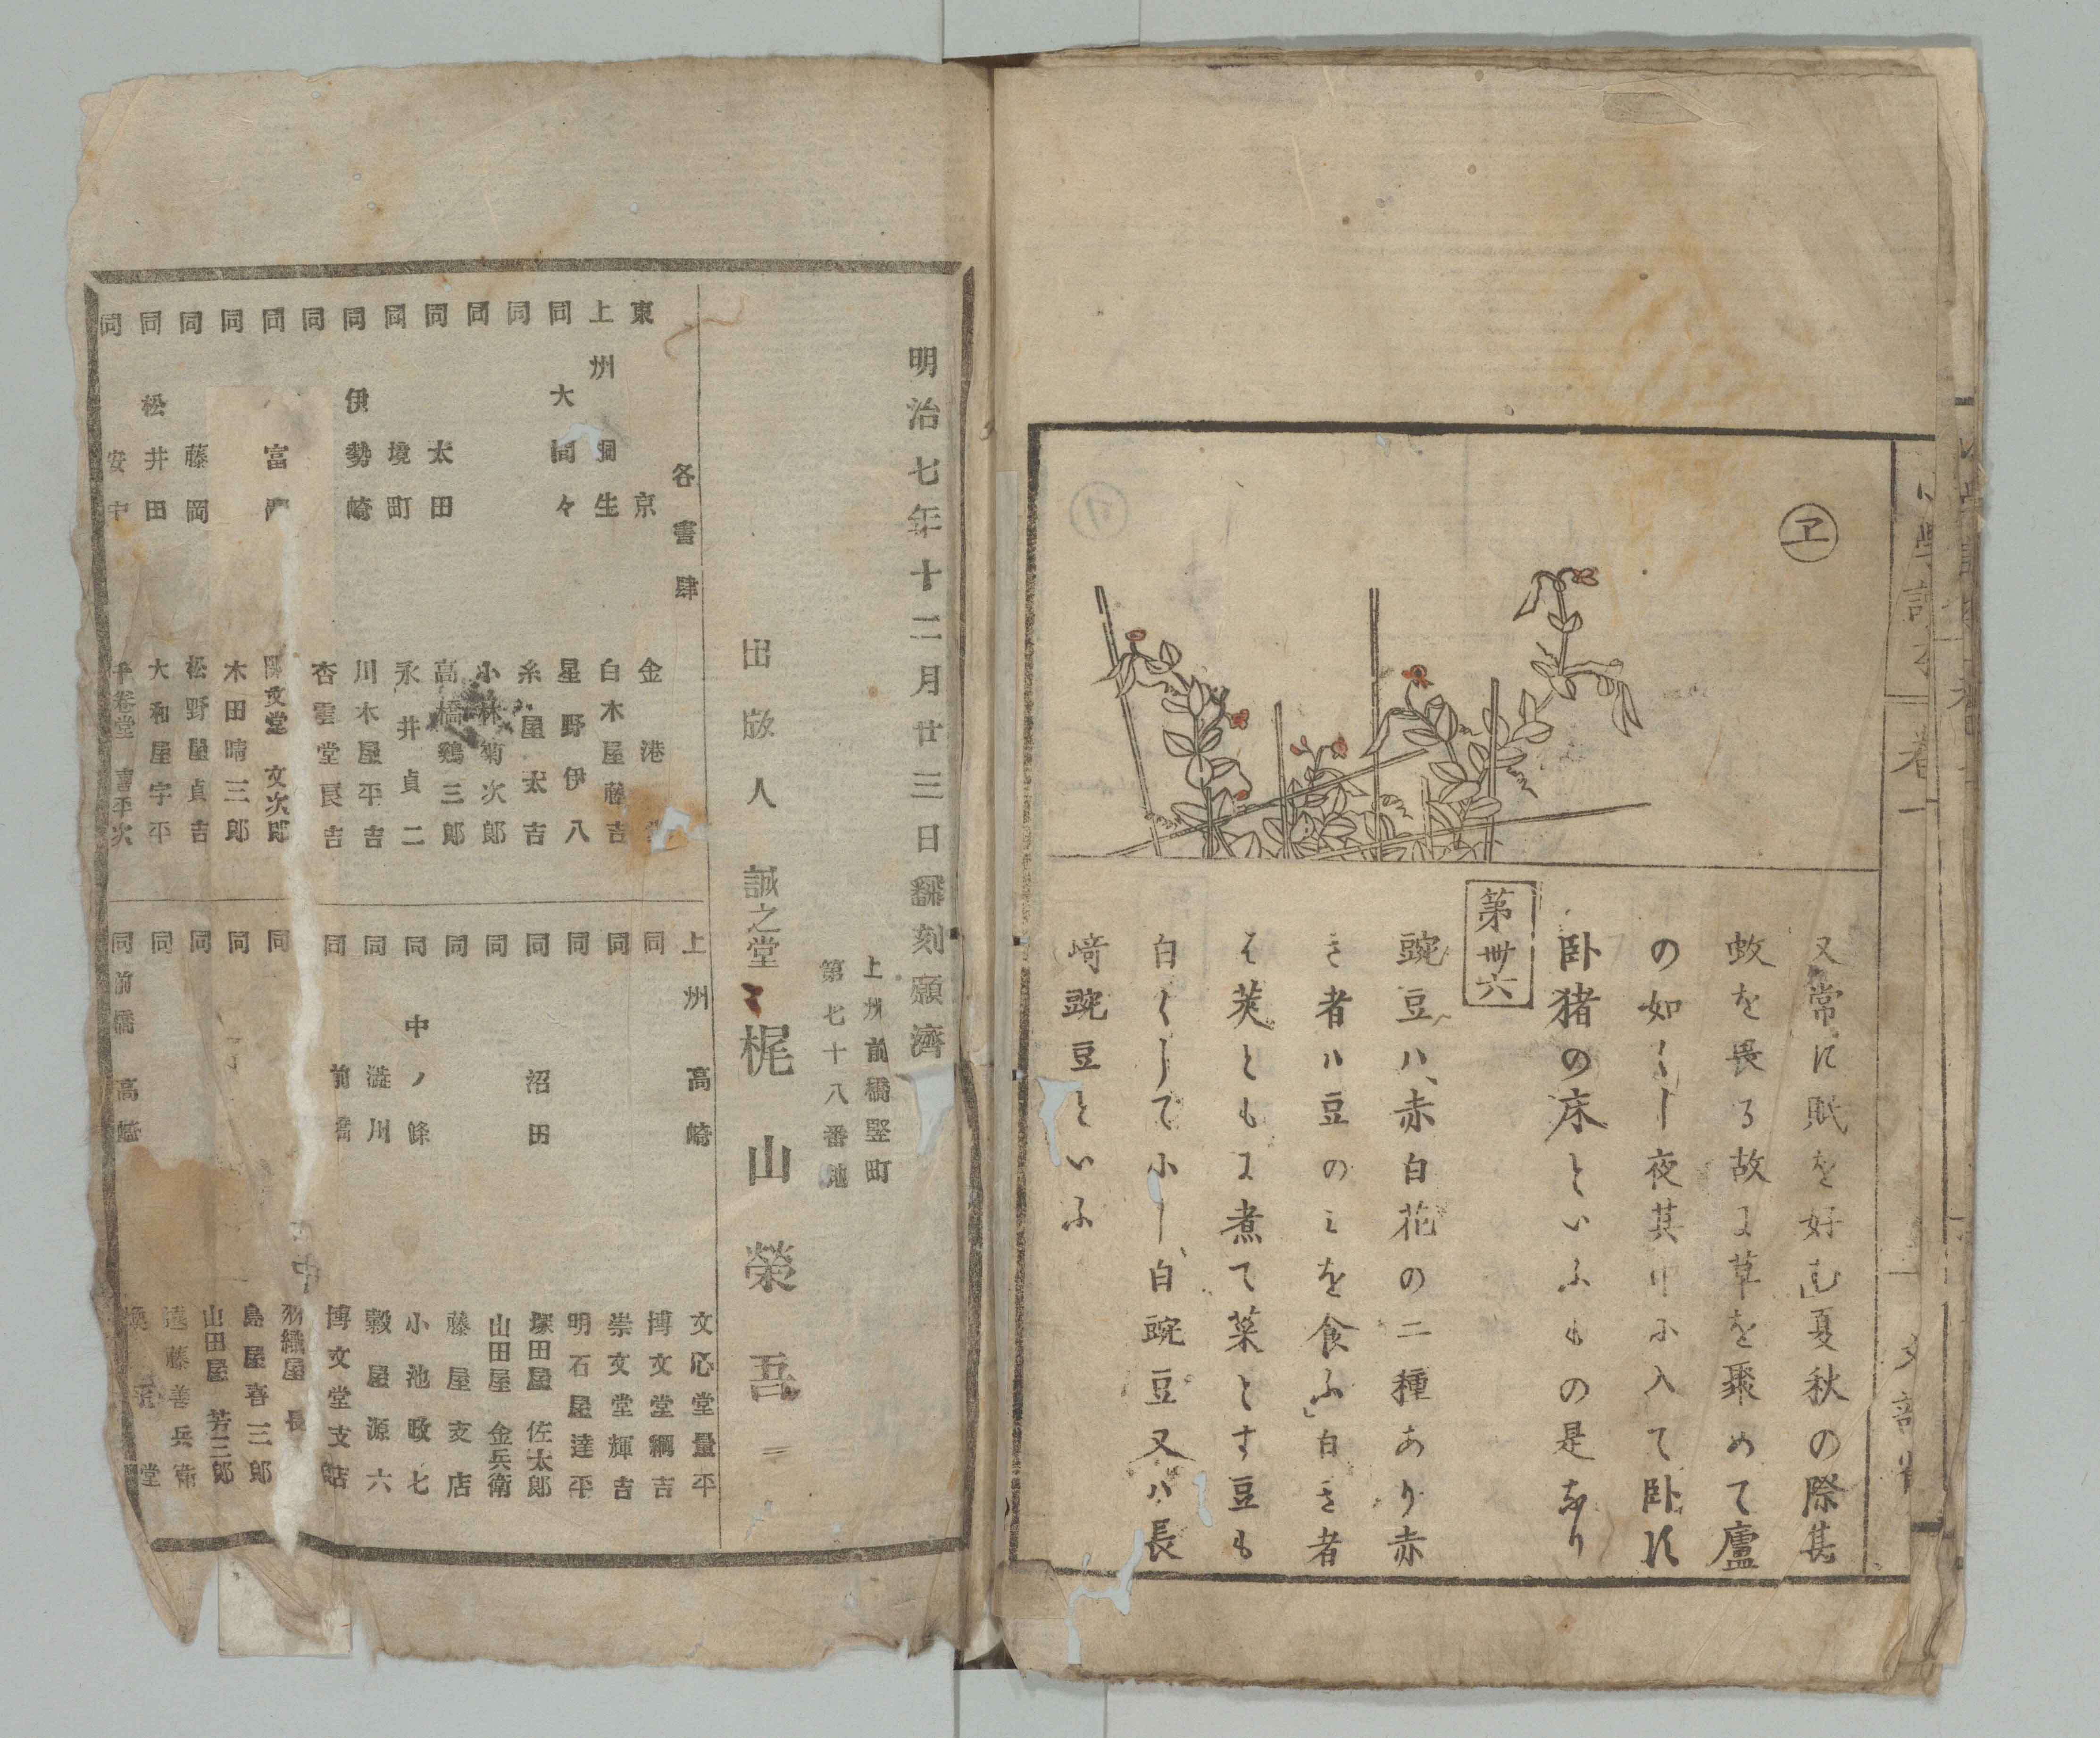 ヱ
又常に眠を好む」夏秋の際其
蚊を畏る故に草を聚めて廬
の如くし夜其中ふ入て卧す
卧猪の床といふもの是なり
第卅六
豌豆ハ、赤白花の二種あり赤
き者ハ豆のミを食ふ」白き者
は莢ともに煮て菜とす豆も
白くして小し、白豌豆又ハ長
﨑豌豆といふ
明治七年十二月廿三日飜刻願濟
上州前橋竪町
第七十八番地
出版人 誠之堂 梶山榮吾
各書肆
東京 金港堂
上州桐生 白木屋藤吉
同 大間々 星野伊八
同 糸屋太吉
同 小林菊次郎
同 太田 高橋鷄三郎
同 境町 永井貞二
同 伊勢崎 川木屋平吉
同 杏雲堂長吉
同 富 文堂 文次郎
同 木田晴三郎
同 藤岡 松野屋貞吉
同 松井田 大和屋宇平
同 安中 千卷堂 喜平次
上州高崎 文心堂量平
同 博文堂綱吉
同 崇文堂輝吉
同 明石屋達平
同 沼田 塚田屋佐太郎
同 山田屋金兵衛
同 藤屋支店
同 中ノ條 小池政七
同 澁川 穀屋源六
同 前橋 博文堂支店
同 羽織屋 長
同 島屋喜三郎
同 山田屋芳三郎
同 遠藤善兵衛
同 前橋 高崎 堂